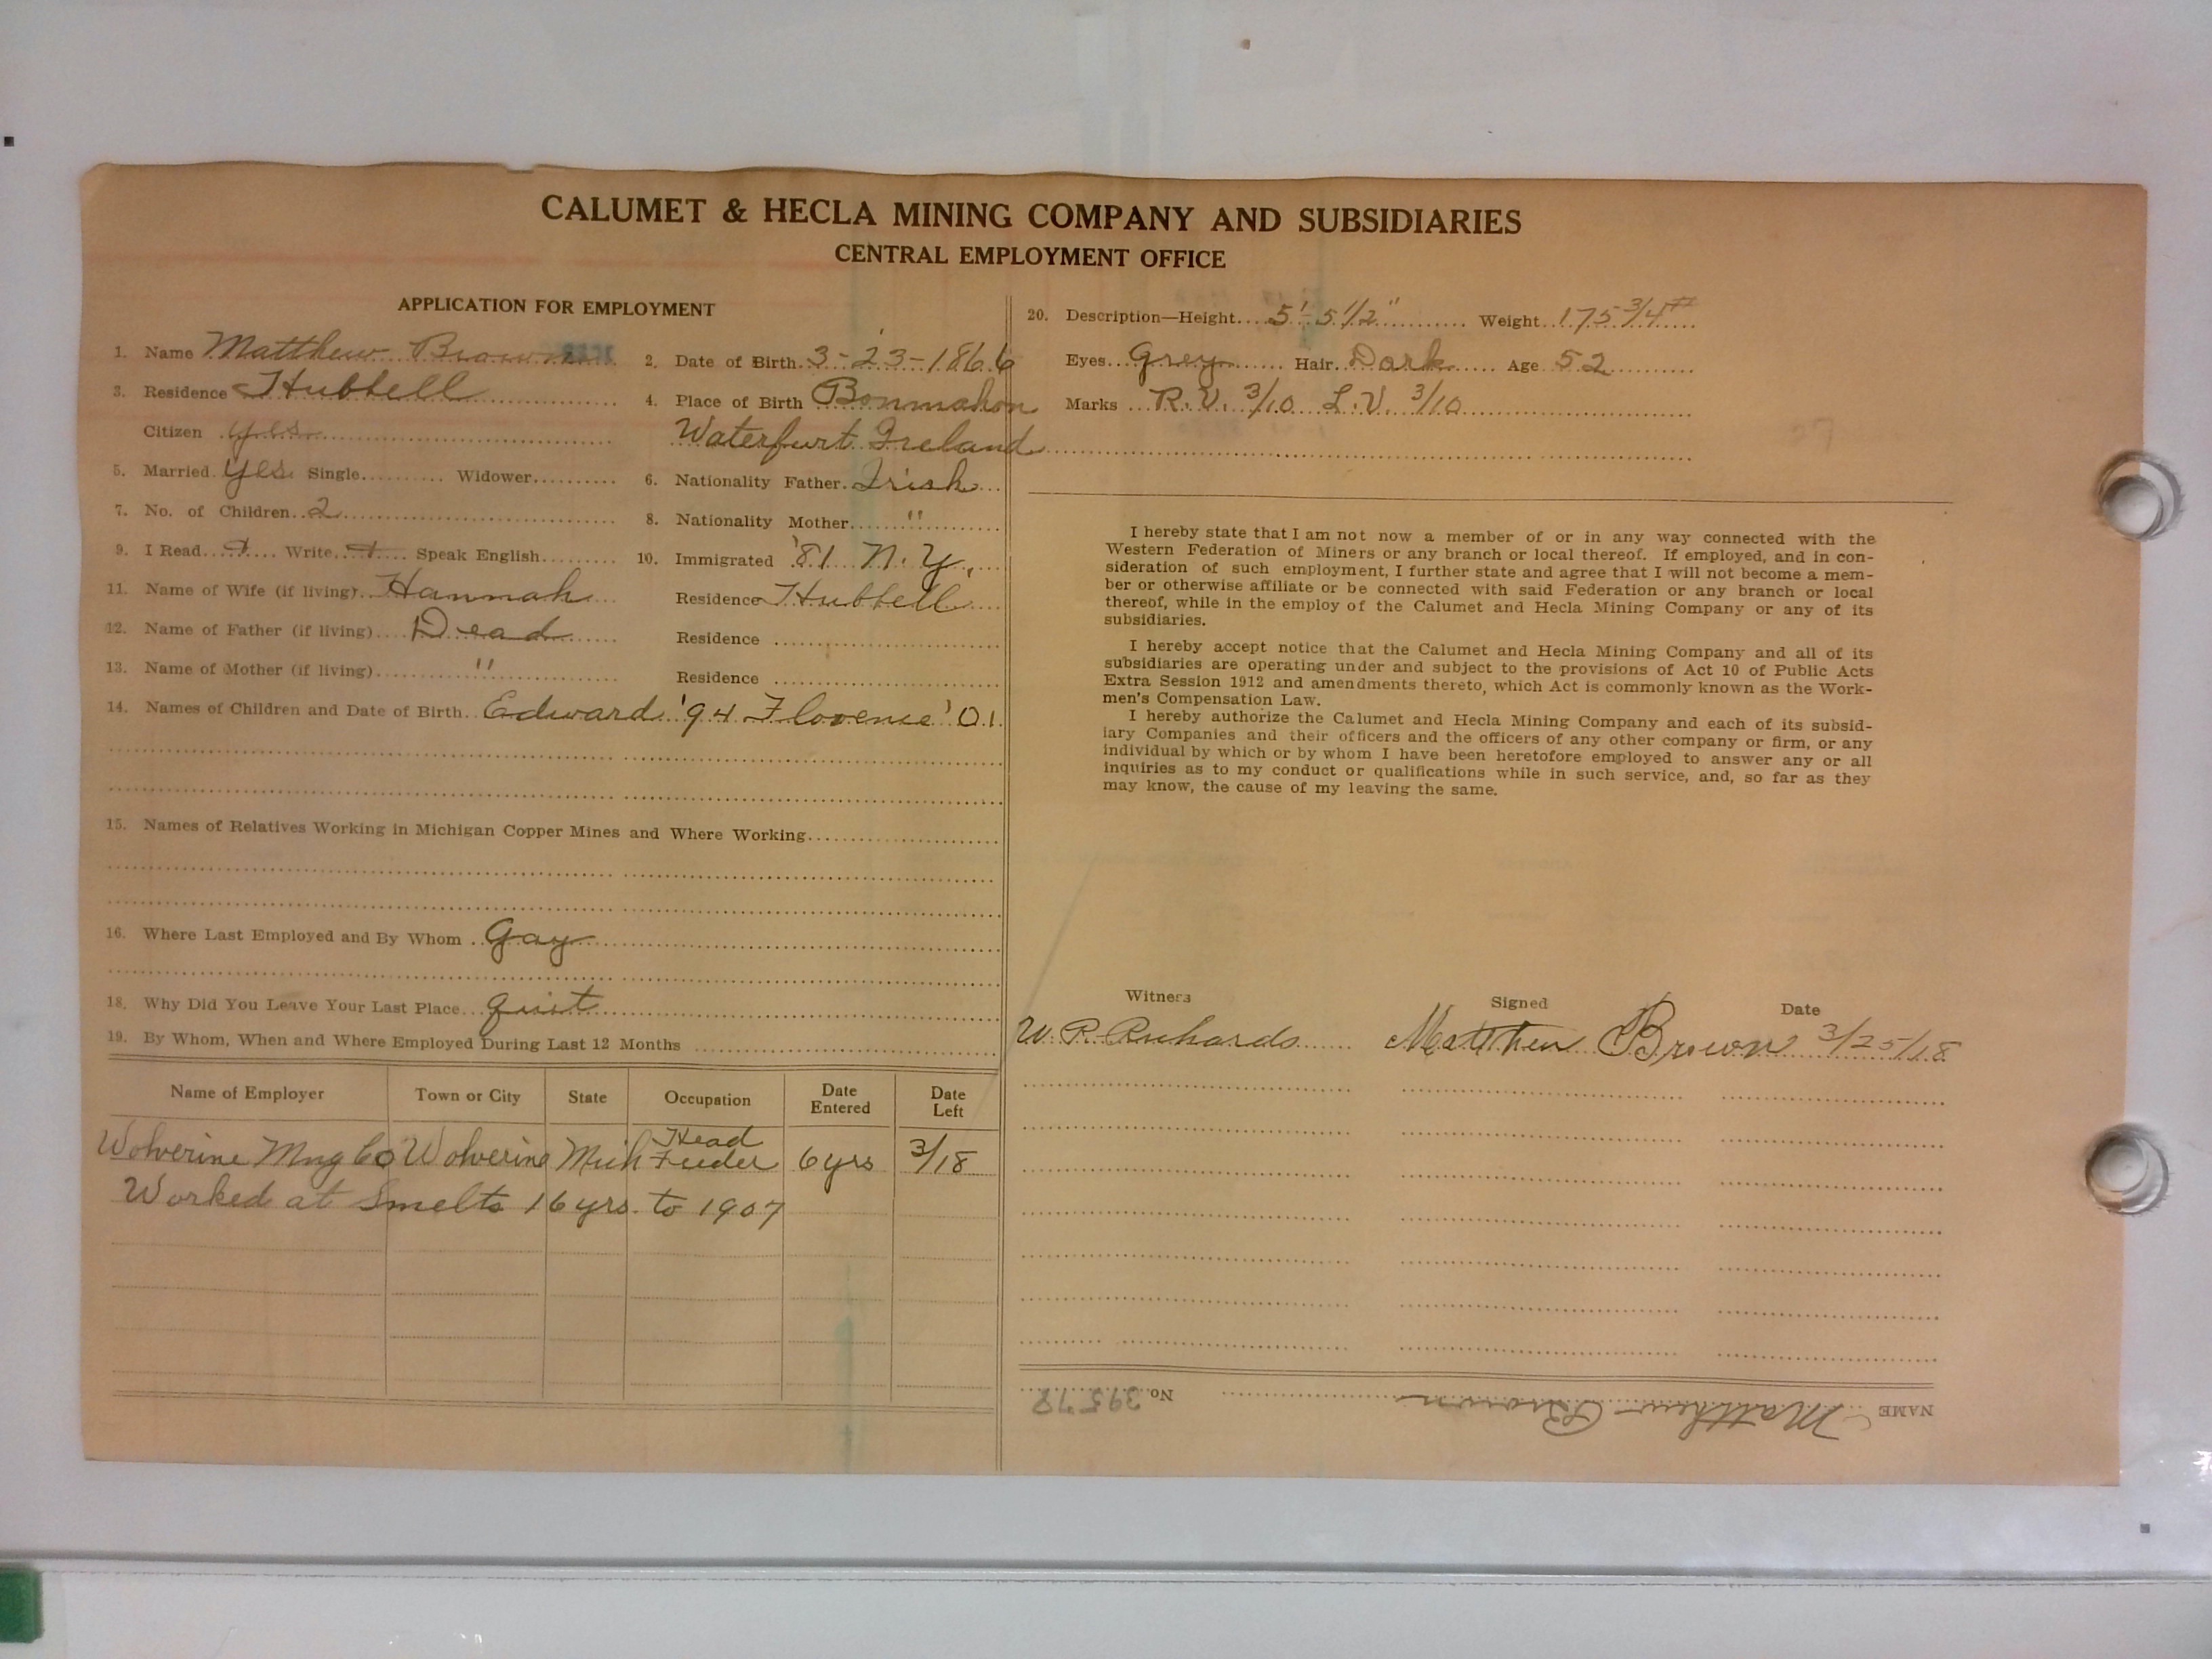 CALUMET & HECLA MINING COMPANY AND SUBSIDIARIES
CENTRAL EMPLOYMENT OFFICE
APPLICATION FOR EMPLOYMENT
1. Name Matthew Brown
2. Date of Birth 3-23-1866
3. Residence Hubbell
4. Place of Birth Bonmahon
Citizen yes
Waterfurt Ireland
5. Married yes Single Widower
6. Nationality Father Irish
7. No. of Children 2
8. Nationality Mother "
9. I Read Write Speak English
10. Immigrated '81 N.Y.
11. Name of Wife (if living) Hannah
Residence Hubbell
12. Name of Father (if living) Dead
Residence
13. Name of Mother (if living) "
Residence
14. Names of Children and Date of Birth Edward '94 Florence '01
15. Names of Relatives Working in Michigan Copper Mines and Where Working
16. Where Last Employed and By Whom Gay
18. Why Did You Leave Your Last Place quit
19. By Whom, When and Where Employed During Last 12 Months
Name of Employer Town or City State Occupation Date Entered Date Left
Wolverine Mng Co Wolverine Mich Head Feeder 6 yrs 3/18
Worked at Smelts 16 yrs. to 1907
20. Description—Height 5'-5 1/2" Weight 175 3/4 #
Eyes Grey Hair Dark Age 52
Marks R.V. 3/10 L.V. 3/10
I hereby state that I am not now a member of or in any way connected with the
Western Federation of Miners or any branch or local thereof. If employed, and in con-
sideration of such employment, I further state and agree that I will not become a mem-
ber or otherwise affiliate or be connected with said Federation or any branch or local
thereof, while in the employ of the Calumet and Hecla Mining Company or any of its
subsidiaries.
I hereby accept notice that the Calumet and Hecla Mining Company and all of its
subsidiaries are operating under and subject to the provisions of Act 10 of Public Acts
Extra Session 1912 and amendments thereto, which Act is commonly known as the Work-
men's Compensation Law.
I hereby authorize the Calumet and Hecla Mining Company and each of its subsid-
iary Companies and their officers and the officers of any other company or firm, or any
individual by which or by whom I have been heretofore employed to answer any or all
inquiries as to my conduct or qualifications while in such service, and, so far as they
may know, the cause of my leaving the same.
Witness Signed Date
W. R. Richards Matthew Brown 3/25/18
NAME Matthew Brown No. 39578